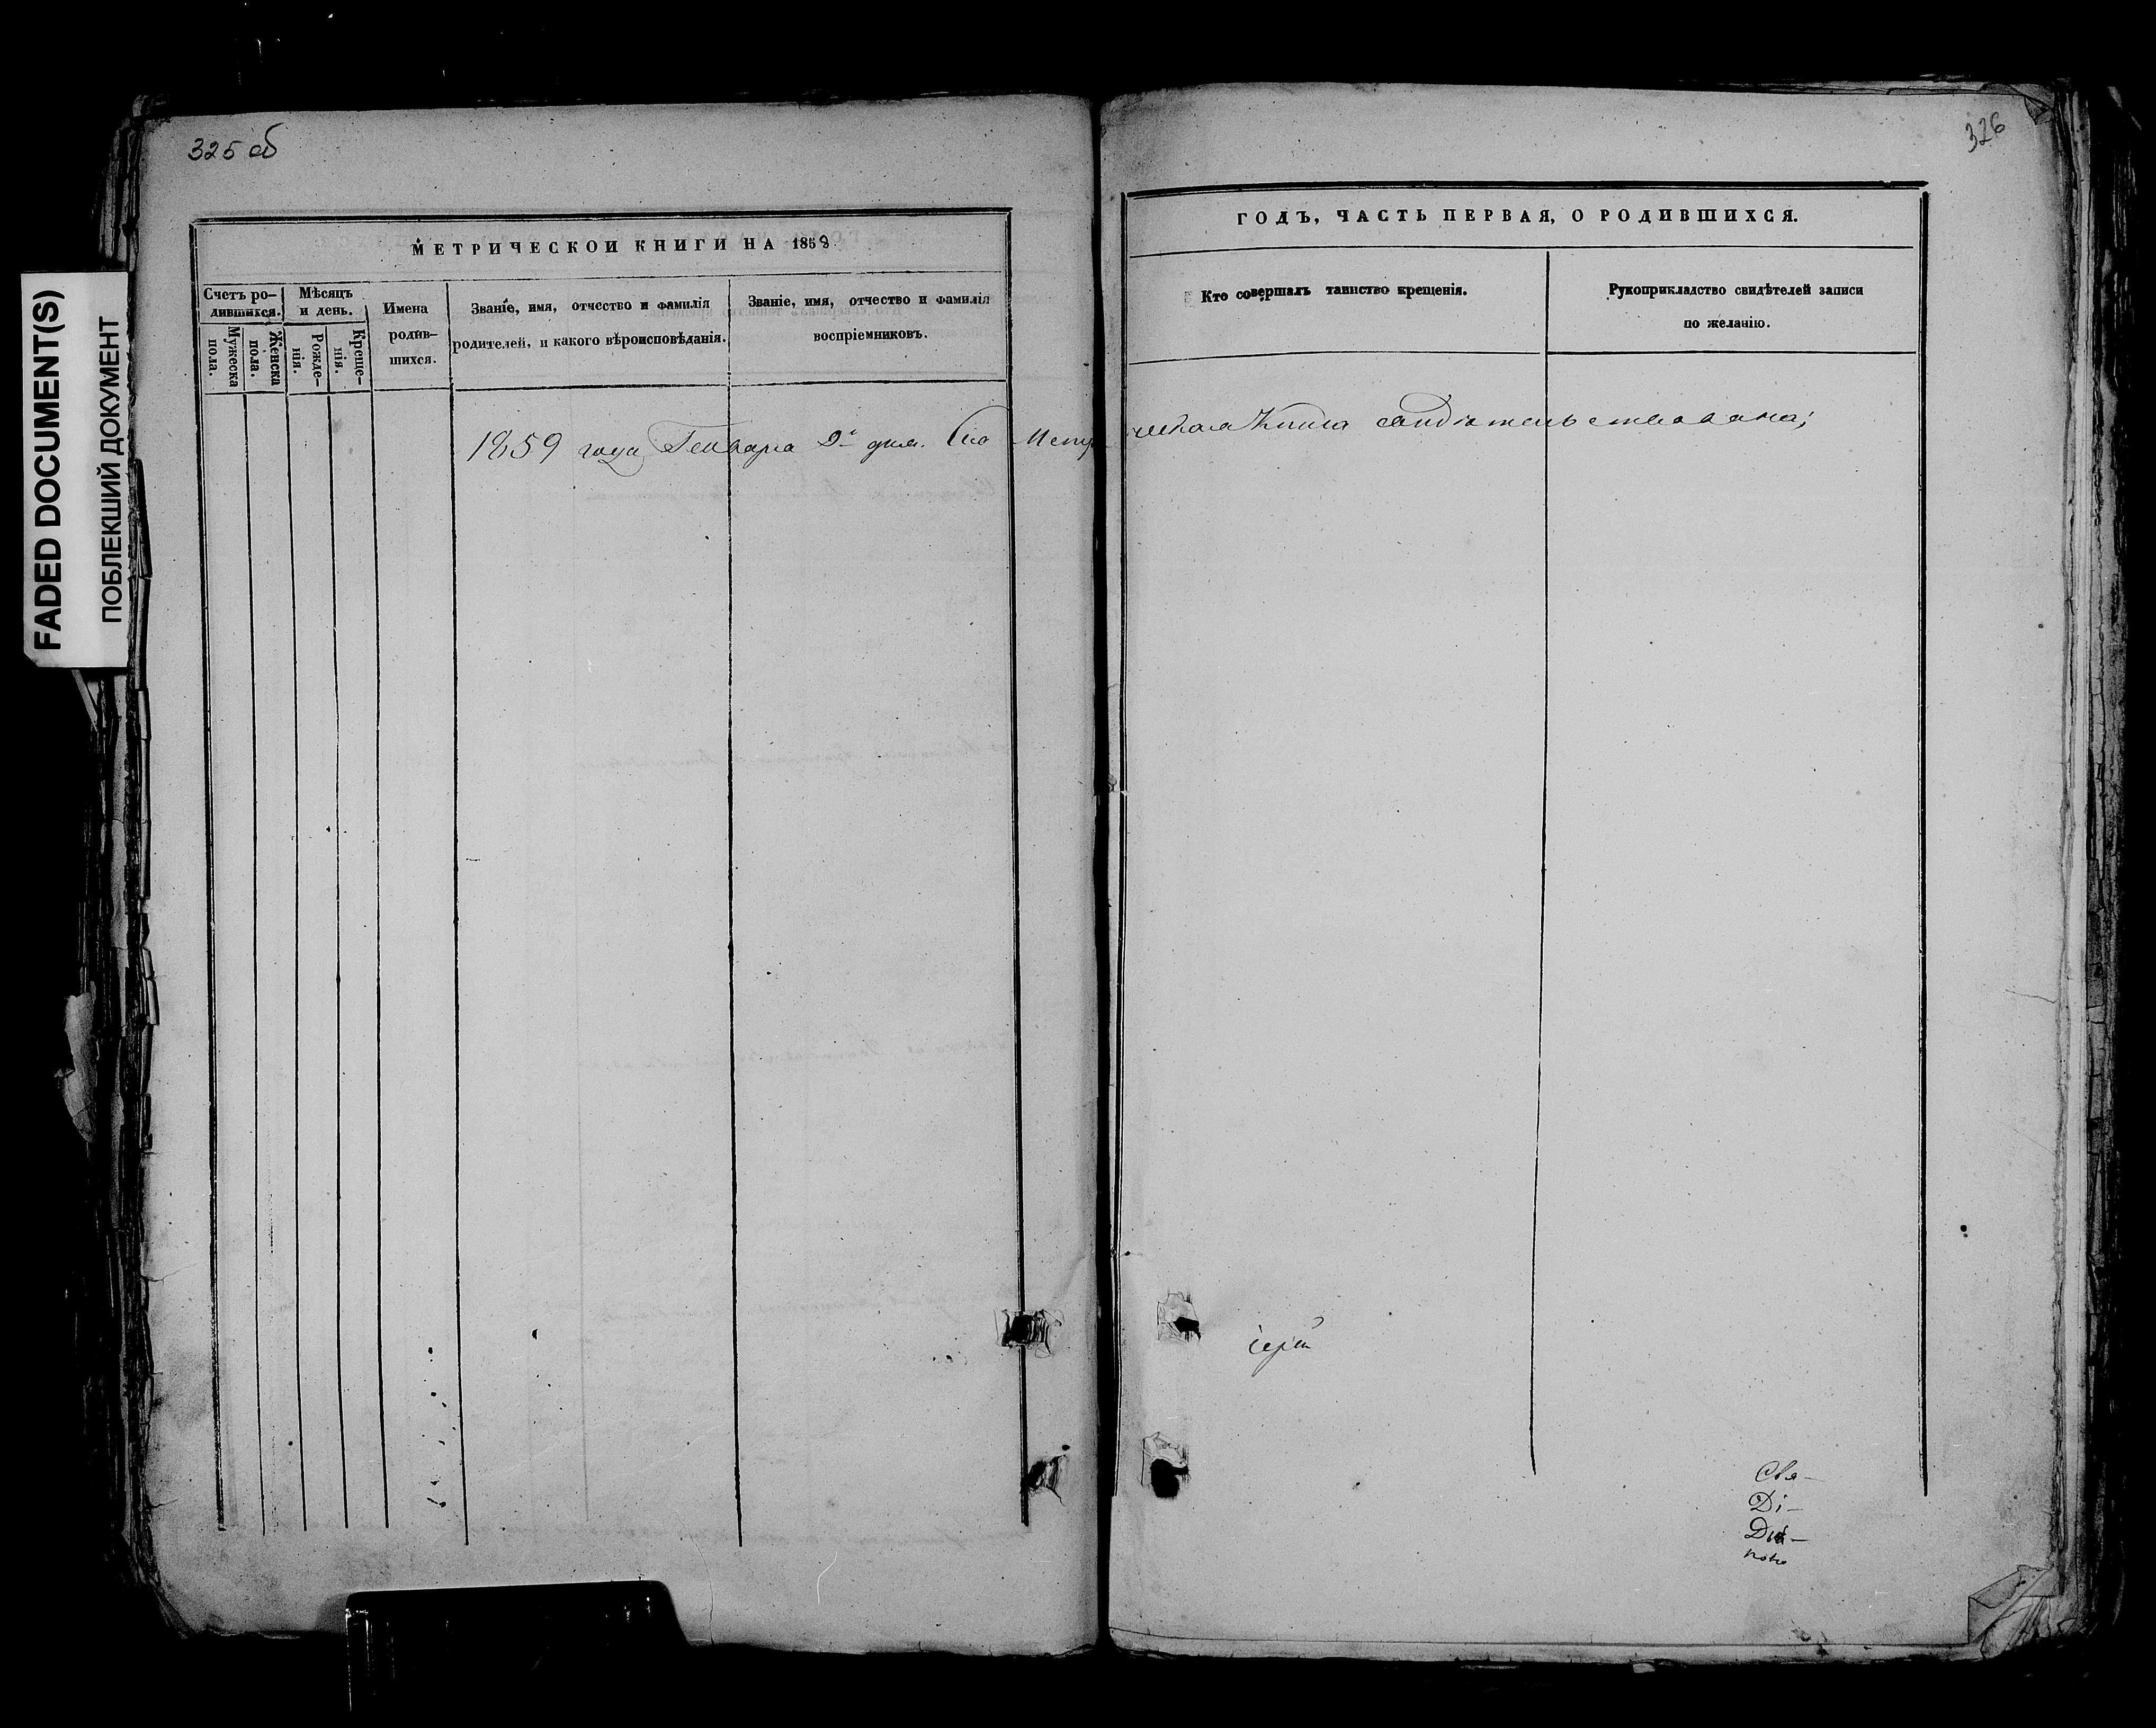 FADED DOCUMENT(S)
ПОБЛЕКШИЙ ДОКУМЕНТ
325 об
МЕТРИЧЕСКОЙ КНИГИ НА 1858
Счетъ ро-
дившихся.
Мужеска
пола.
Женска
пола.
Мѣсяцъ
и день.
Рожде-
нія.
Креще-
нія.
Имена
родив-
шихся.
Званіе, имя, отчество и фамилія
родителей, и какого вѣроисповѣданія.
Званіе, имя, отчество и фамилія
воспріемниковъ.
326
ГОДЪ, ЧАСТЬ ПЕРВАЯ, О РОДИВШИХСЯ.
Кто совершалъ таинство крещенія.
Рукоприкладство свидѣтелей записи
по желанію.
1859 года Генваря дня. Сія Метрическая Книга свидѣтельствована;
Свя-
Ді-